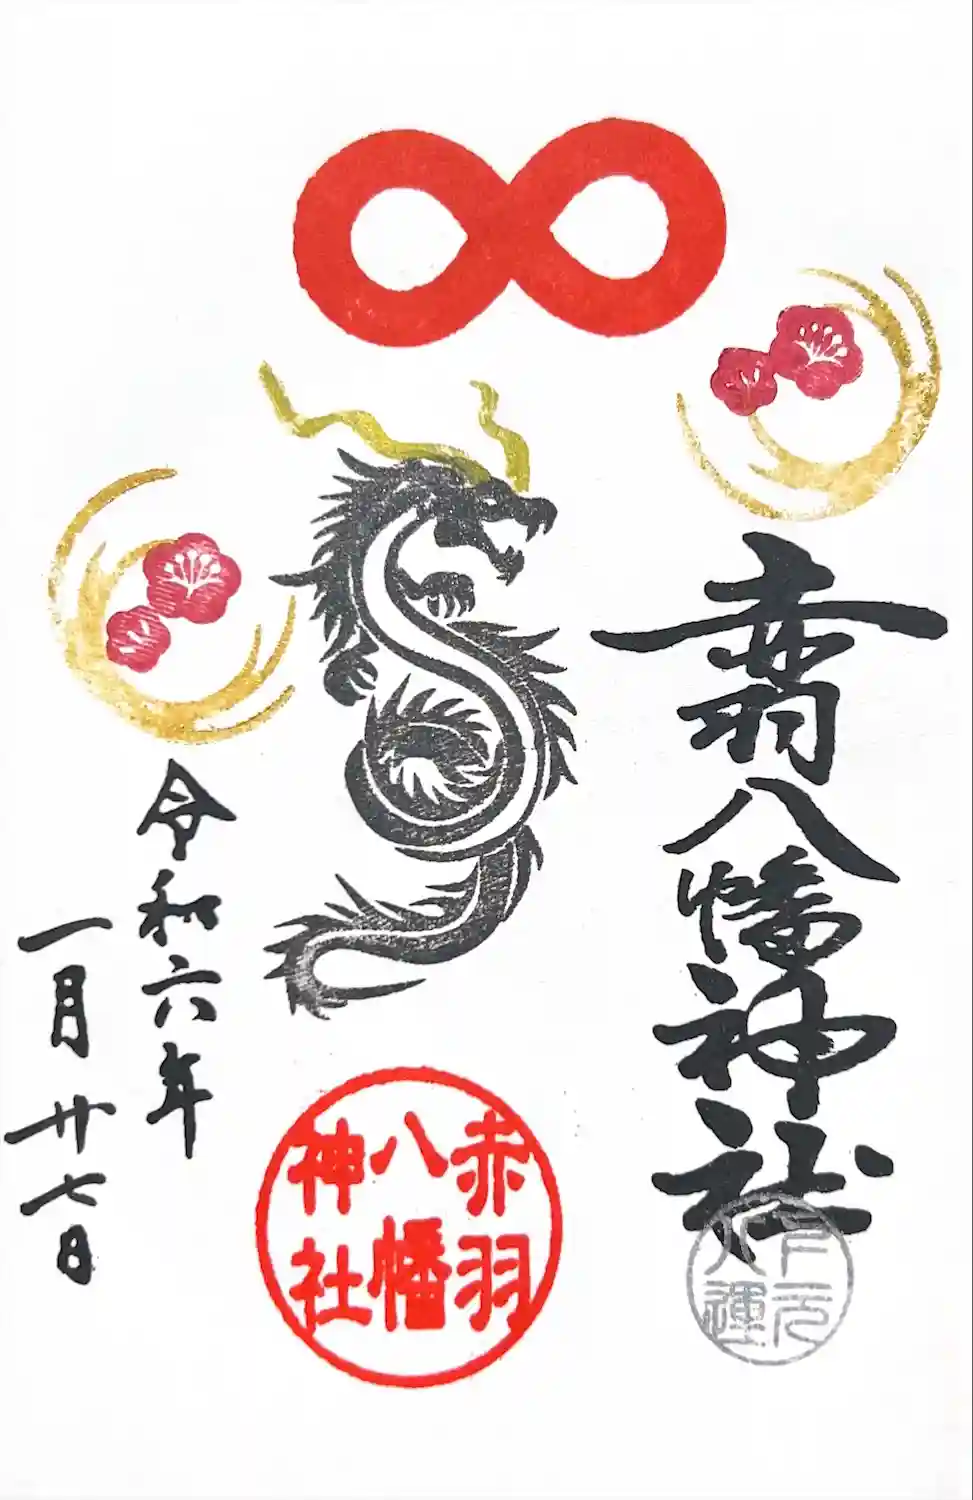 赤羽八幡神社
下元
八運
赤羽
八幡
神社
令和六年
一月廿七日